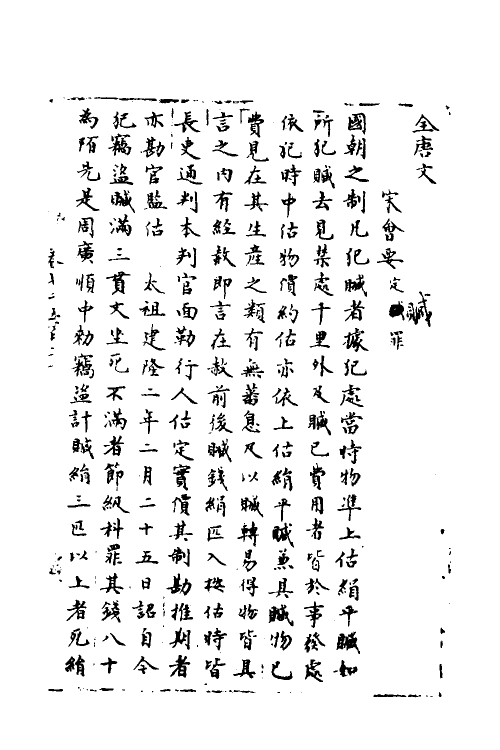 全唐文
宋會要 定贓罪
贓
國朝之制凡犯贓者據犯處當時物準上估絹平贓如
所犯贓去見禁處千里外及贓已費用者皆於事發處
依犯時中估物價約估亦依上估絹平贓兼具贓物已
費見在其生產之類有無蕃息及以贓轉易得物皆具
言之内有經赦即言在赦前後贓錢絹匹入捴估時皆
長吏通判本判官面勒行人估定實價其制勘推期者
亦勘官監估 太祖建隆二年二月二十五日詔自今
犯竊盗贓滿三貫文坐死不滿者節級科罪其錢八十
為陌先是周廣順中勑竊盗計贓絹三匹以上者死絹